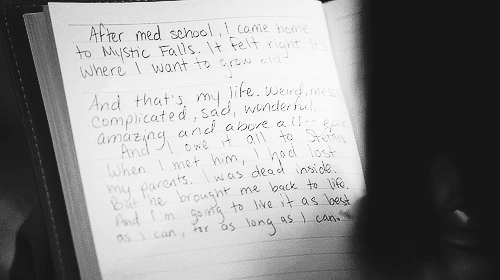 After med school, I came home
to Mystic Falls. It felt right. It's
where I want to grow old.
And that's my life. Weird, messy,
complicated, sad, wonderful,
amazing and above all-- epic
And I owe it all to Stefan
When I met him, I had lost
my parents. I was dead inside.
But he brought me back to life.
And I'm going to live it as best
as I can, for as long as I can.